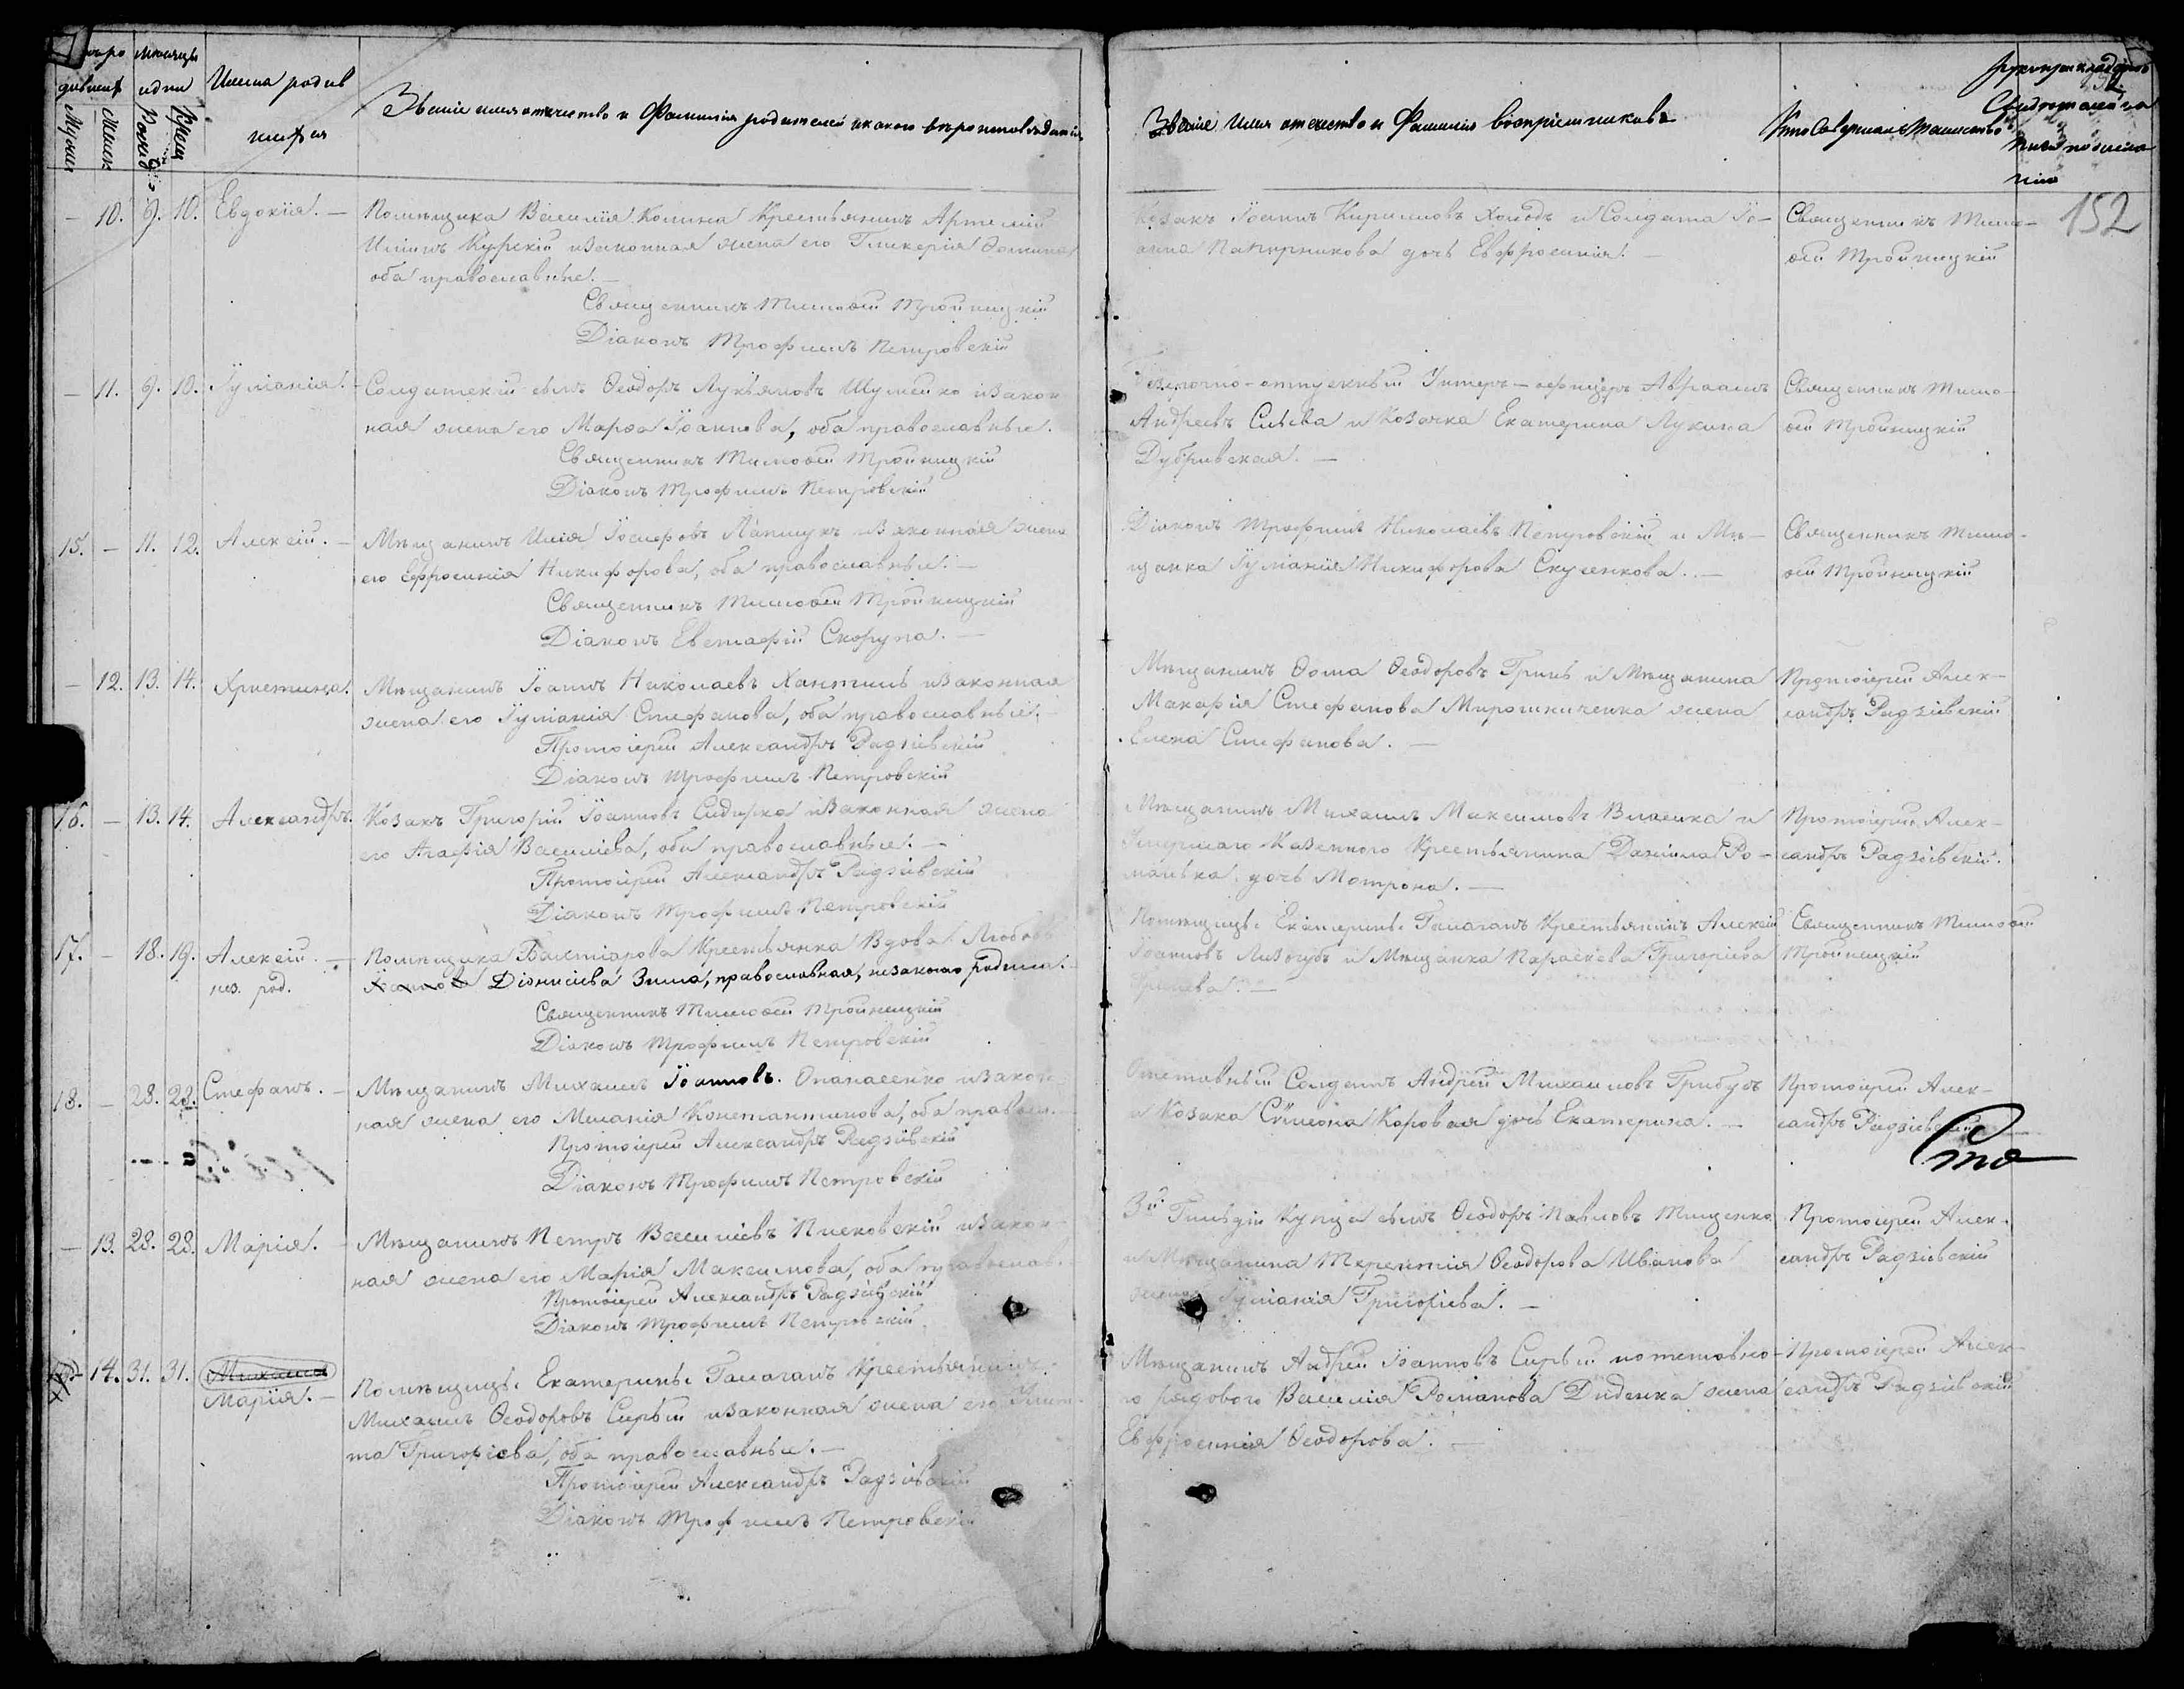 Имена родив
шихся
Званіе имя отчество и Фамилія родителей и какого вѣроисповѣданія
Званіе имя отчество и Фамилія воспріемниковъ
Кто Совершалъ Таинство
152
— 10. 9. 10. Евдокія. —
Помѣщика Василія Крестьянинъ Артемій
и законная жена его Гликерія
оба православные. —
Священникъ Тимоѳей Тройницкій
Діаконъ Трофимъ Петровскій
Козакъ Іоаннъ Кирилловъ и Солдата Іо-
анна дочь Евфросинія. —
Священникъ Тимо-
ѳей Тройницкій
— 11. 9. 10. Іуліанія. —
Солдатскій сынъ Ѳеодоръ Лукьяновъ Шумейко и закон
ная жена его Марѳа Іоаннова, оба православные.
Священникъ Тимоѳей Тройницкій
Діаконъ Трофимъ Петровскій
Безсрочно-отпускный Унтеръ-офицеръ Авраамъ
Андреевъ и Козачка Екатерина Лукина
Дубривская. —
Священникъ Тимо-
ѳей Тройницкій
15. — 11. 12. Алексій. —
Мѣщанинъ Илія Іосифовъ Лапшукъ и законная жена
его Ефросинія Никифорова, оба православные. —
Священникъ Тимоѳей Тройницкій
Діаконъ Евстафій Скорупа. —
Діаконъ Трофимъ Николаевъ Петровскій и Мѣ-
щанка Іуліанія Никифорова —
Священникъ Тимо-
ѳей Тройницкій
— 12. 13. 14. Христина.
Мѣщанинъ Іоаннъ Николаевъ и законная
жена его Іуліанія Стефанова, оба православные. —
Протоіерей Александръ Радзіевскій
Діаконъ Трофимъ Петровскій
Мѣщанинъ Ѳома Ѳеодоровъ Гринь и Мѣщанина
Макарія Стефанова Мирошниченка жена
Елена Стефанова. —
Протоіерей Алек-
сандръ Радзіевскій
16. — 13. 14. Александръ.
Козакъ Григорій Іоанновъ и законная жена
его Агафія Василіева, оба православные. —
Протоіерей Александръ Радзіевскій
Діаконъ Трофимъ Петровскій
Мѣщанинъ Михаилъ Максимовъ и
Умершаго Казеннаго Крестьянина Даніила Ро-
манька дочь Мотрона. —
Протоіерей Алек-
сандръ Радзіевскій.
17. — 18. 19. Алексій. —
нез. род.
Помѣщика Крестьянка Вдова Любовь
Іоаннова Діонисіева Зима, православная, незаконно родила.
Священникъ Тимоѳей Тройницкій
Діаконъ Трофимъ Петровскій
Помѣщицы Екатерины Галаганъ Крестьянинъ Алексій
Іоанновъ Лизогубъ и Мѣщанка Параскева Григоріева
Священникъ Тимоѳей
Тройницкій
18. — 28. 28. Стефанъ. —
Мѣщанинъ Михаилъ Іоанновъ Опанасенко и закон
ная жена его Меланія Константинова, оба правосл.
Протоіерей Александръ Радзіевскій
Діаконъ Трофимъ Петровскій
Отставный Солдатъ Андрей Михаиловъ
и Козака Сѵмеона Коровая дочь Екатерина. —
Протоіерей Алек-
сандръ Радзіевскій
— 13. 28. 28. Марія. —
Мѣщанинъ Петръ Василіевъ Писковскій и закон-
ная жена его Марія Максимова, оба православ.
Протоіерей Александръ Радзіевскій
Діаконъ Трофимъ Петровскій
3й Гильдіи Купца сынъ Ѳеодоръ Павловъ Тищенко
и Мѣщанина Терентія Ѳеодорова Иванова
жена Іуліанія Григоріева. —
Протоіерей Алек-
сандръ Радзіевскій
14. 31. 31. Михаилъ
Марія. —
Помѣщицы Екатерины Галаганъ Крестьянинъ
Михаилъ Ѳеодоровъ Сирый и законная жена его Ули-
та Григоріева, оба православные. —
Протоіерей Александръ Радзіевскій
Діаконъ Трофимъ Петровскій
Мѣщанинъ Андрей Іоанновъ Сирый и отставно-
го рядового Василія Романова Диденка жена
Евфросинія Ѳеодорова. —
Протоіерей Алек-
сандръ Радзіевскій